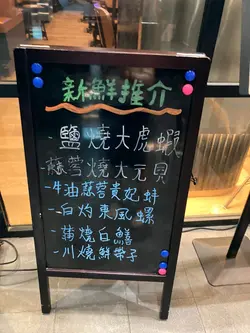 新鮮推介
鹽燒大虎蝦
蒜蓉燒大元貝
牛油蒜蓉貴妃蚌
白灼東風螺
蒲燒白鱔
川燒鮮帶子